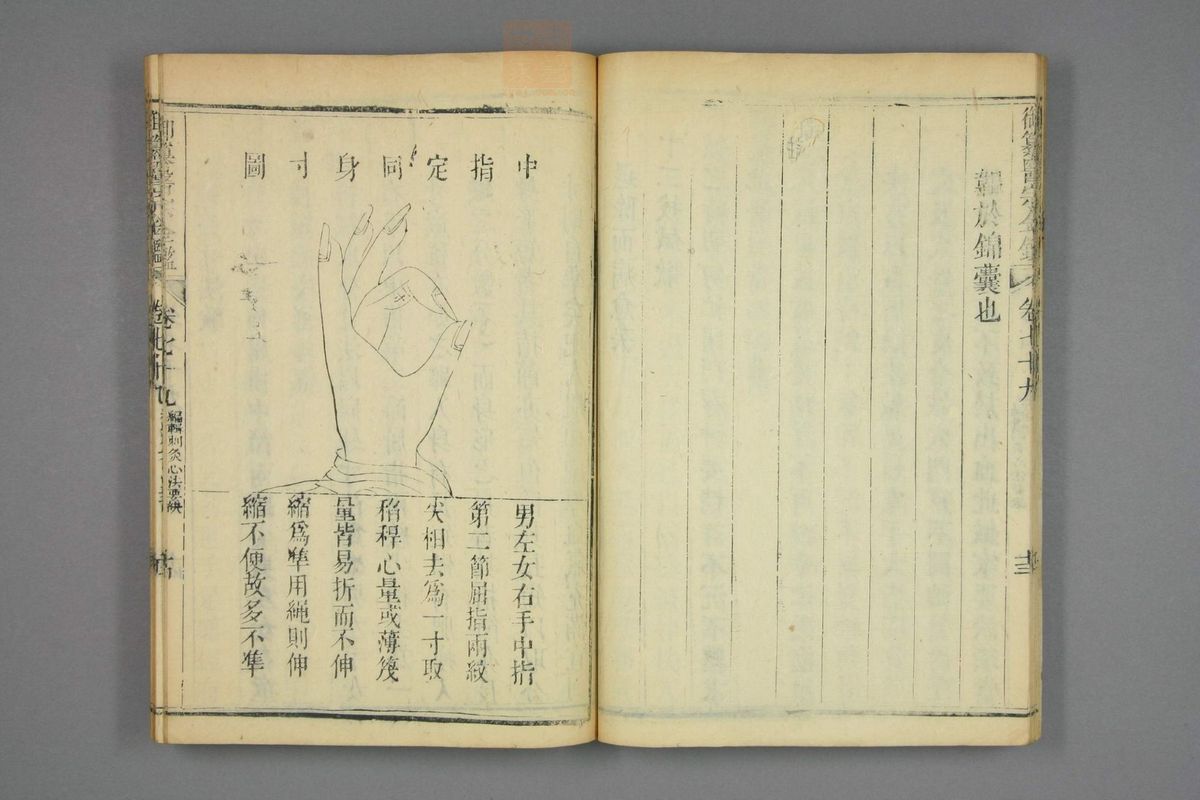 御纂醫宗金鑑
卷七十九
韞於錦囊也
中指定同身寸圖
男左女右手中指
第二節屈指兩紋
尖相去為一寸取
稻稈心量或薄篾
量皆易折而不伸
縮為準用繩則伸
縮不便故多不準
御纂醫宗金鑑
卷七十九
編輯刺灸心法要訣